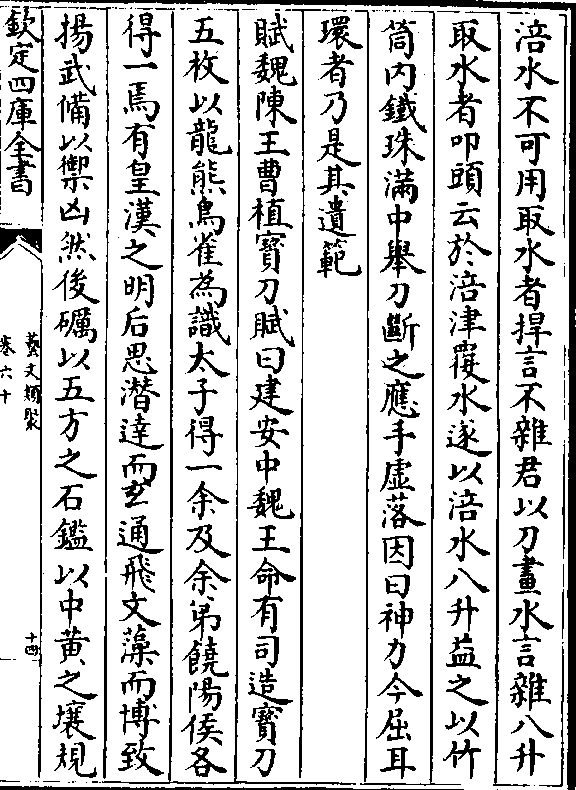 涪水不可用取水者捍言不雜君以刀畫水言雜八升
取水者叩頭云於涪津覆水遂以涪水八升益之以竹
筒内鐵珠滿中舉刀斷之應手虛落因曰神刀今屈耳
環者乃是其遺範
賦魏陳王曹植寶刀賦曰建安中魏王命有司造寶刀
五枚以龍熊鳥雀為識太子得一余及余弟饒陽侯各
得一焉有皇漢之明后思潛達而玄通飛文藻而博致
揚武備以禦凶然後礪以五方之石鑑以中黃之壤規
欽定四庫全書
藝文類聚
卷六十
十四